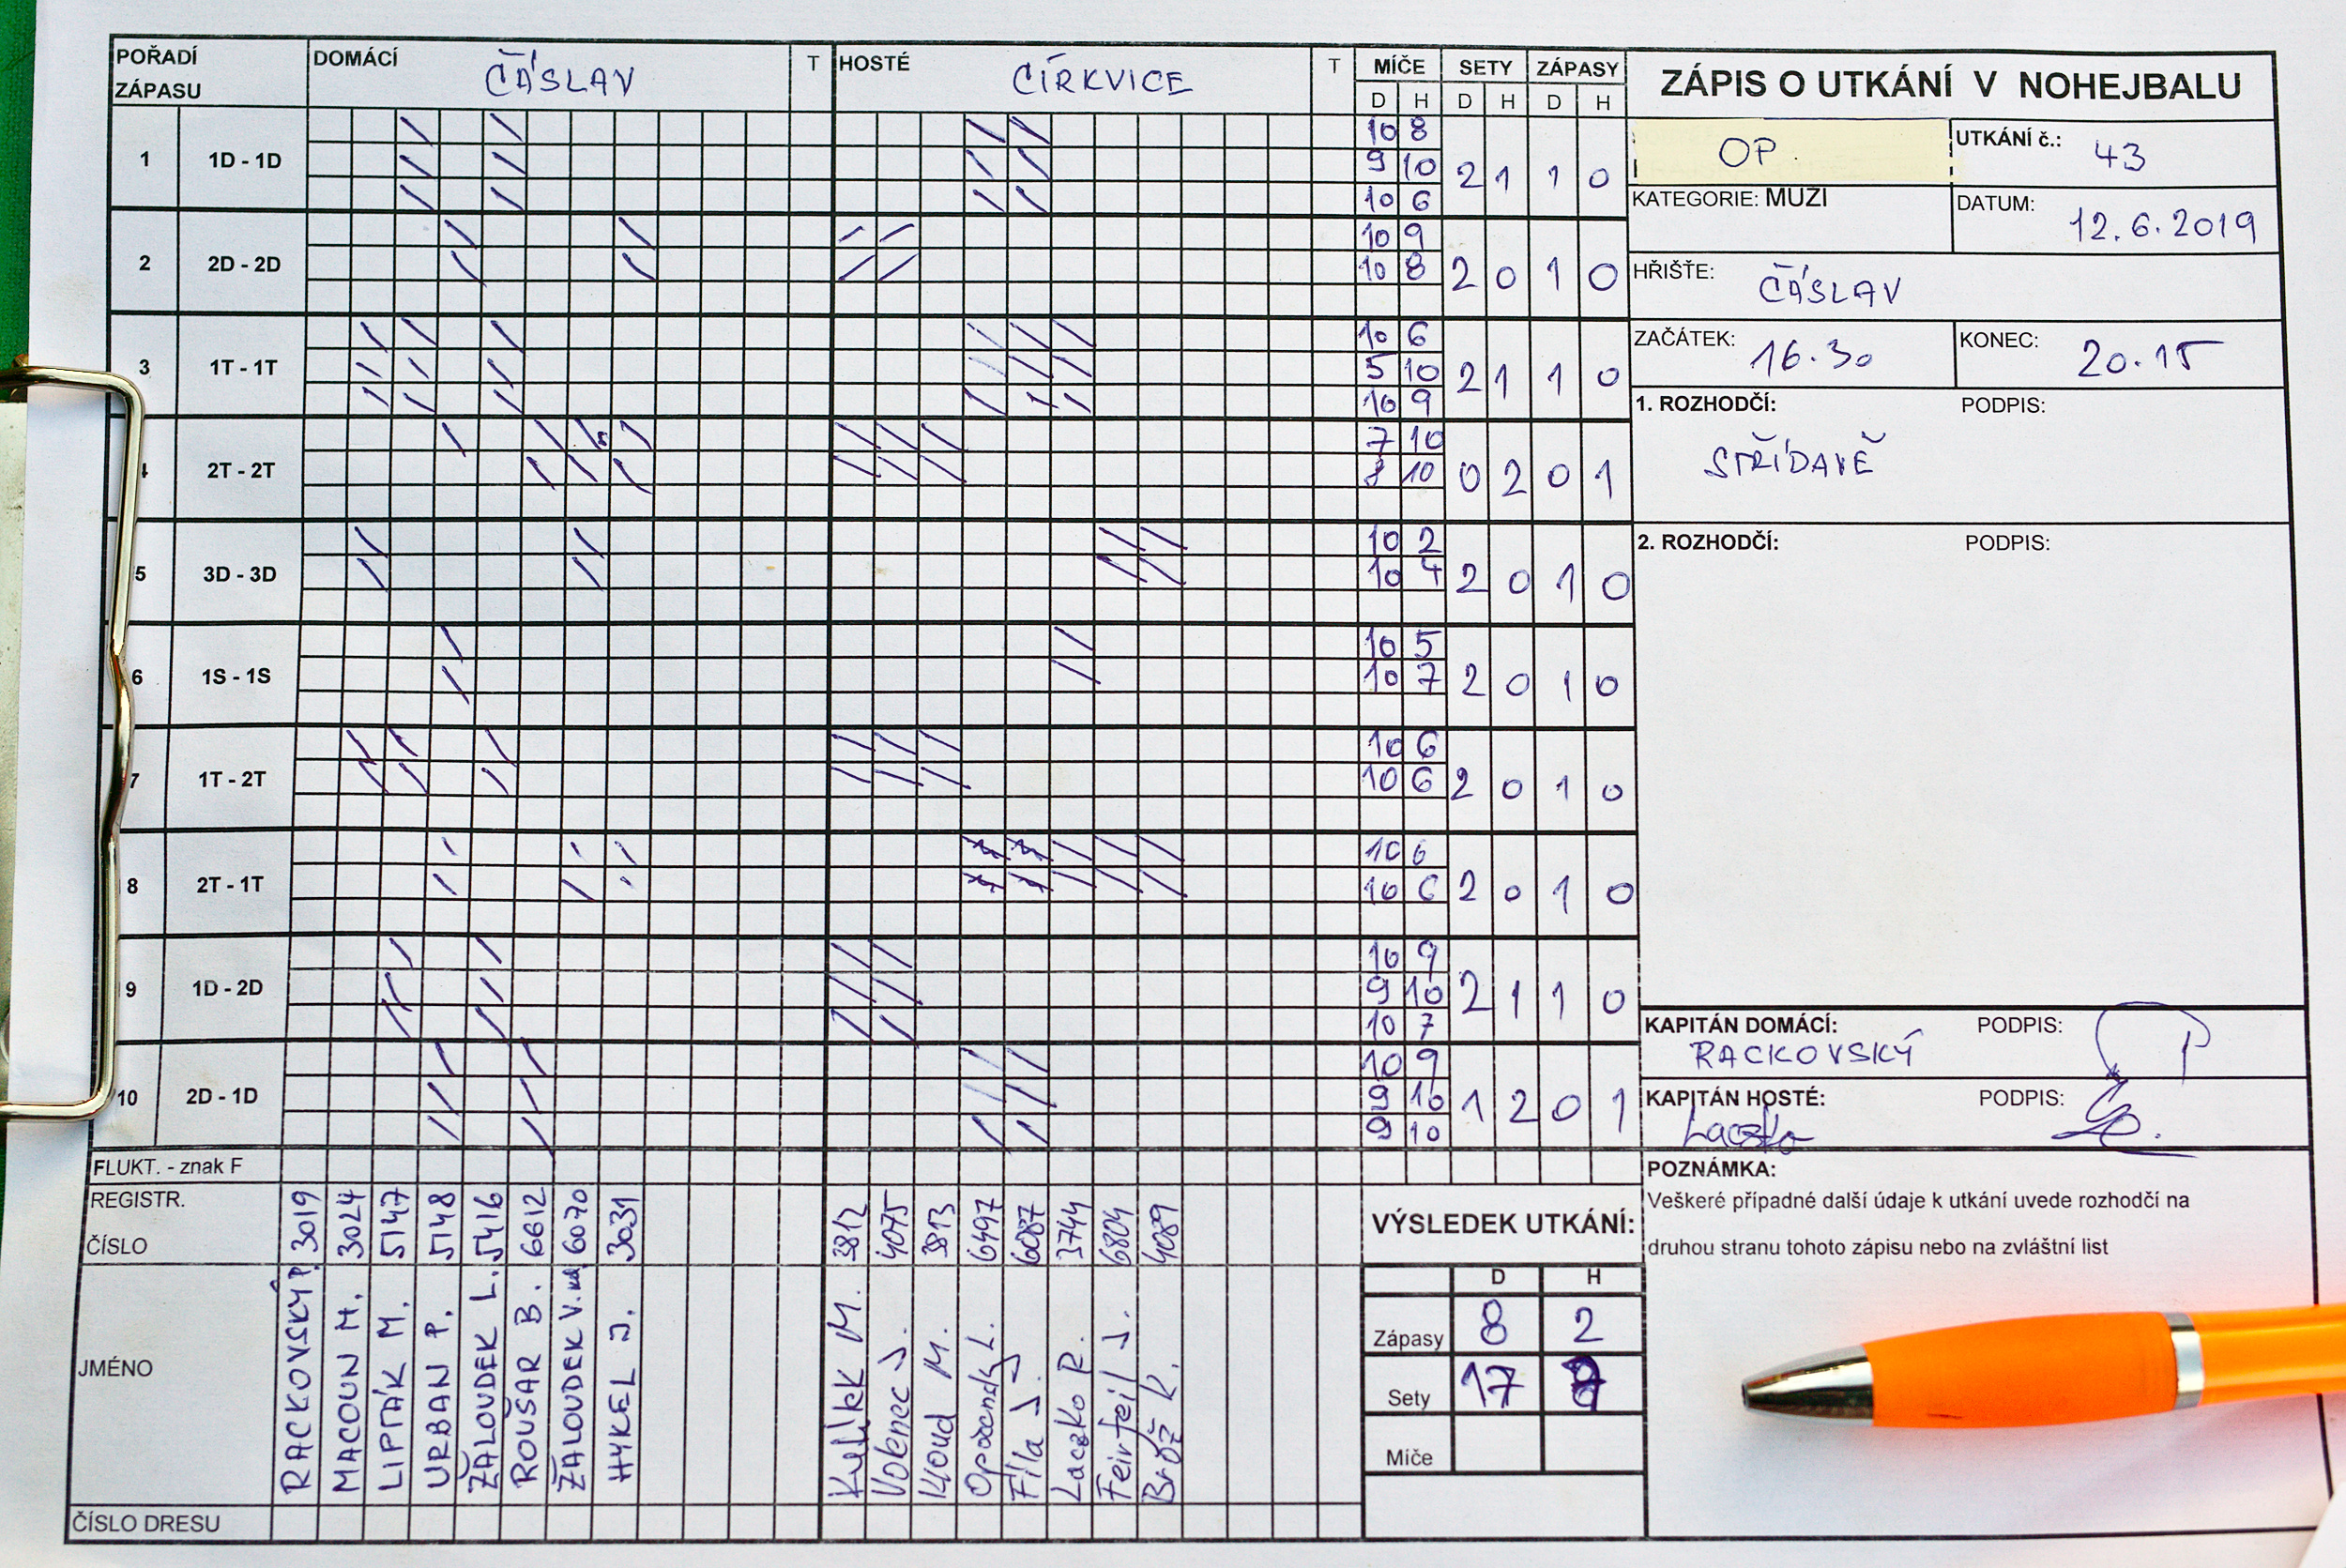 POŘADÍ ZÁPASU
DOMÁCÍ ČÁSLAV T
HOSTÉ CÍRKVICE T
MÍČE SETY ZÁPASY
D H D H D H
1 1D - 1D 10 8 2 1 1 0
9 10
10 6
2 2D - 2D 10 9 2 0 1 0
10 8
3 1T - 1T 10 6 2 1 1 0
5 10
10 9
4 2T - 2T 7 10 0 2 0 1
8 10
5 3D - 3D 10 2 2 0 1 0
10 4
6 1S - 1S 10 5 2 0 1 0
10 7
7 1T - 2T 10 6 2 0 1 0
10 6
8 2T - 1T 10 6 2 0 1 0
10 6
9 1D - 2D 10 9 2 1 1 0
9 10
10 7
10 2D - 1D 10 9 1 2 0 1
9 10
9 10
FLUKT. - znak F
REGISTR. ČÍSLO
3019 3024 5147 5148 5416 6612 6070 3031
3812 4075 3813 6497 6087 3744 6804 4089
JMÉNO
RACKOVSKÝ P.
MACOUN M.
LIPTÁK M.
URBAN P.
ŽALOUDEK L.
ROUŠAR B.
ŽALOUDEK V. ml.
HYKEL J.
Kulík M.
Vobenec J.
Kloud M.
Opočenský L.
Fila J.
Laczko R.
Feirfeil J.
Brož K.
ČÍSLO DRESU
ZÁPIS O UTKÁNÍ V NOHEJBALU
OP.
UTKÁNÍ č.: 43
KATEGORIE: MUZI
DATUM: 12.6.2019
HŘIŠŤE: ČÁSLAV
ZAČÁTEK: 16.30
KONEC: 20.15
1. ROZHODČÍ: PODPIS:
STŘÍDAVĚ
2. ROZHODČÍ: PODPIS:
KAPITÁN DOMÁCÍ: PODPIS:
RACKOVSKÝ
KAPITÁN HOSTÉ: PODPIS:
Laczko
POZNÁMKA:
Veškeré případné další údaje k utkání uvede rozhodčí na
druhou stranu tohoto zápisu nebo na zvláštní list
VÝSLEDEK UTKÁNÍ:
D H
Zápasy 8 2
Sety 17
Míče